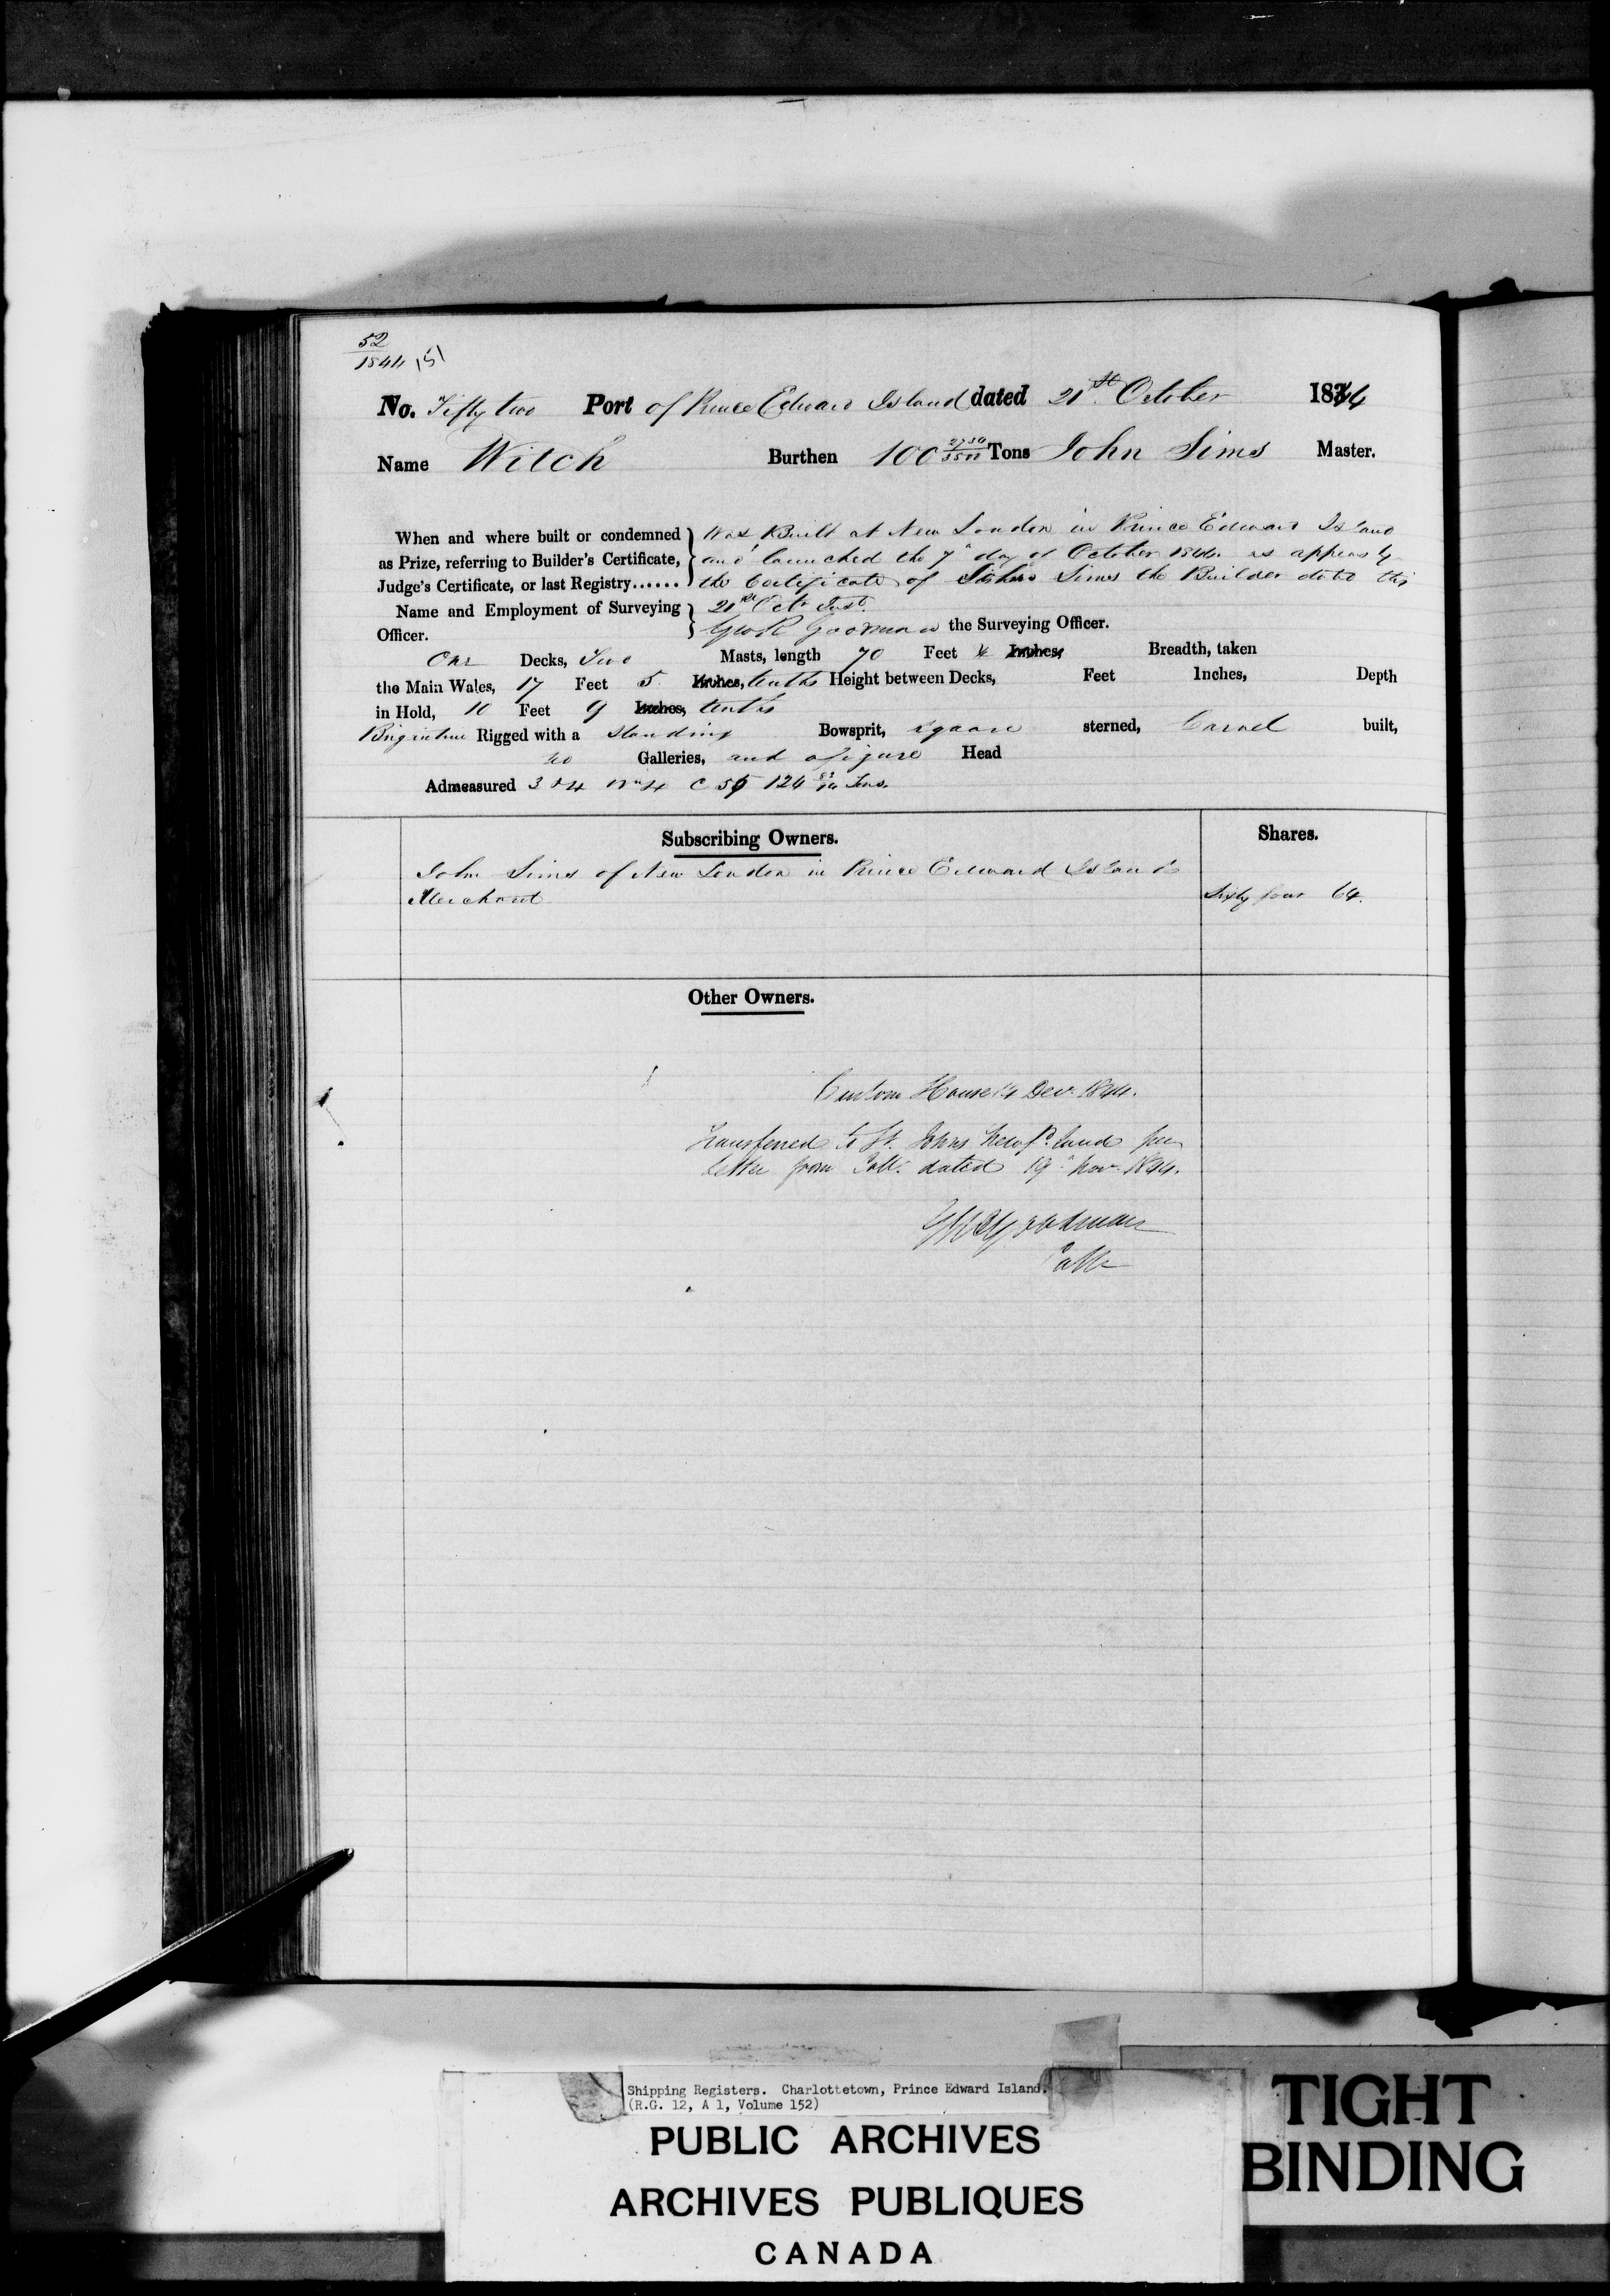 52
1844
No. Fifty two Port of Prince Edward Island dated 21st October 1844
Name Witch Burthen 100 2734/3500 Tons John Sims Master.
When and where built or condemned as Prize, referring to Builder's Certificate, Judge's Certificate, or last Registry......
Was Built at New London in Prince Edward Island
and launched the 7th day of October 1844. as appears by
the Certificate of John Sims the Builder dated this
21st Octr Inst.
Name and Employment of Surveying Officer.
Geo R Goodman the Surveying Officer.
One Decks, Two Masts, length 70 Feet Inches, Breadth, taken
the Main Wales, 17 Feet 5 Inches, tenths Height between Decks, Feet Inches, Depth
in Hold, 10 Feet 9 Inches, tenths
Brigantine Rigged with a Standing Bowsprit, square sterned, Carvel built,
no Galleries, and a figure Head
Admeasured 124 Tons.
Subscribing Owners.
Shares.
John Sims of New London in Prince Edward Island
Merchant
Sixty four 64.
Other Owners.
Custom House 14 Decr. 1844.
Transferred to St. Johns Newfd.land per
letter from Collr. dated 19th Novr. 1844.
Goodman
Collr
Shipping Registers. Charlottetown, Prince Edward Island.
(R.G. 12, A 1, Volume 152)
PUBLIC ARCHIVES
ARCHIVES PUBLIQUES
CANADA
TIGHT
BINDING